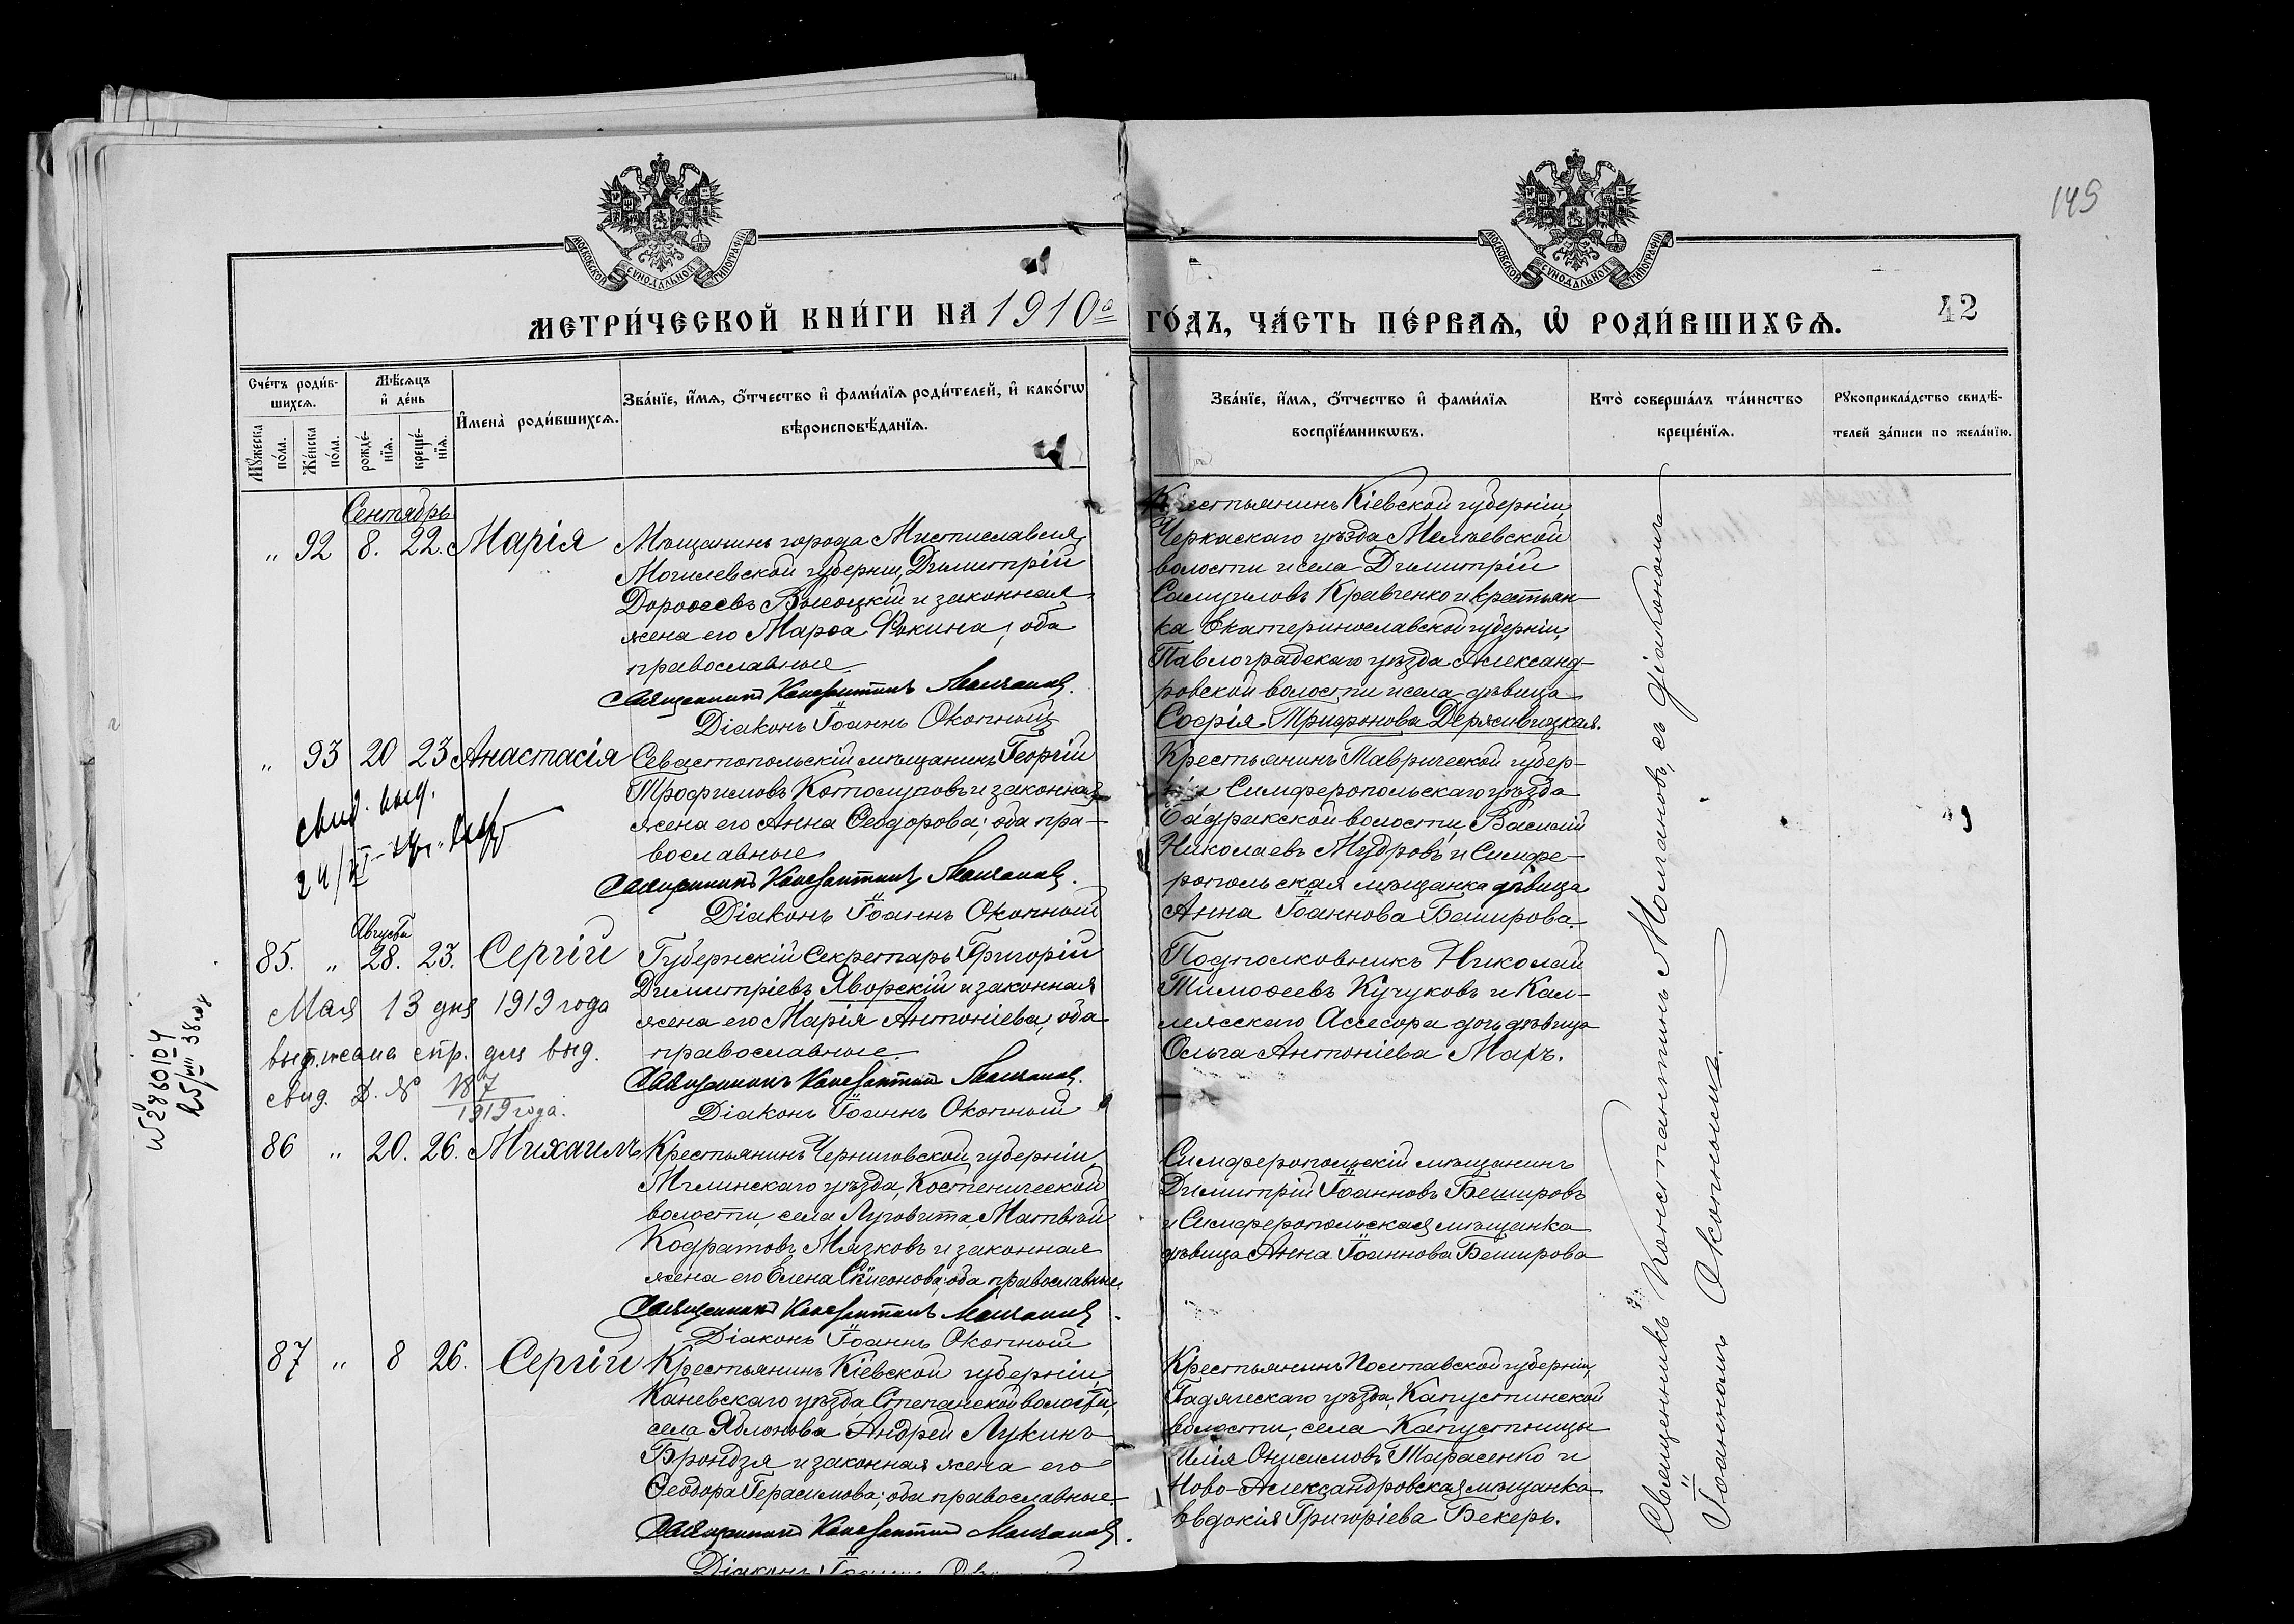 149
МОСКОВСКОЙ СѴНОДАЛЬНОЙ ТИПОГРАФІИ
МОСКОВСКОЙ СѴНОДАЛЬНОЙ ТИПОГРАФІИ
МЕТРИ́ЧЕСКОЙ КНИ́ГИ НА 1910й ГО́ДЪ, ЧА́СТЬ ПЕ́РВАѦ, Ѡ҆ РОДИ́ВШИХСѦ.
42
Сче́тъ роди́в-
шихсѧ.
Мѣ́сѧцъ
и҆ де́нь
Мꙋ́жеска
по́ла.
Же́нска
по́ла.
рожде́-
нїѧ.
креще́-
нїѧ.
И҆мена̀ роди́вшихсѧ.
Зва́нїе, и҆́мѧ, ѻ҆́тчество и҆ фами́лїѧ роди́телей, и҆ како́гѡ
вѣроисповѣ́данїѧ.
Зва́нїе, и҆́мѧ, ѻ҆́тчество и҆ фами́лїѧ
воспрїе́мникѡвъ.
Кто̀ соверша́лъ та́инство
креще́нїѧ.
Рꙋкоприкла́дство свидѣ́-
телей за́писи по жела́нїю.
Сентябрь
„ 92 8. 22. Марія
Мѣщанинъ города Мистиславля,
Могилевской губерніи, Димитрій
Дороѳеевъ Высоцкій и законная
жена его Марѳа Фокина; оба
православные.
Священникъ Константинъ Молчановъ.
Діаконъ Іоаннъ Окопный
Крестьянинъ Кіевской губерніи,
Черкаскаго уѣзда Мелѣевской
волости и села Димитрій
Самуиловъ Кравченко и крестьян-
ка Екатеринославской губерніи,
Павлоградскаго уѣзда Александ-
ровской волости и села дѣвица
Софія Трифонова Держивицкая.
„ 93 20 23 Анастасія
свид. выд.
Севастопольскій мѣщанинъ Георгій
Трофимовъ Котолуповъ и законная
жена его Анна Ѳеодорова; оба пра-
вославные
Священникъ Константинъ Молчановъ.
Діаконъ Іоаннъ Окопный
Крестьянинъ Таврической губер-
ніи Симферопольскаго уѣзда
Бадракской волости, Василій
Николаевъ Мудровъ и Симфе-
ропольская мѣщанка дѣвица
Анна Іоаннова Беширова.
Августа
85. „ 28. 23. Сергій
Мая 13 дня 1919 года
выд. спр. для выд.
свид. Д. № 187
1919 года.
№ 2860104
25/VIII 38
Губернскій Секретарь Григорій
Димитріевъ Яворскій и законная
жена его Марія Антоніева; оба
православные.
Священникъ Константинъ Молчановъ.
Діаконъ Іоаннъ Окопный
Подполковникъ Николай
Тимоѳеевъ Кучуковъ и Кол-
лежскаго Ассесора дочь дѣвица
Ольга Антоніева Маръ.
86 „ 20. 26. Михаилъ
Крестьянинъ Черниговской губерніи
Мглинскаго уѣзда, Костеничской
волости, села Луговита, Матвѣй
Кодратовъ Мязковъ и законная
жена его Елена Сѵмеонова; оба православные.
Священникъ Константинъ Молчановъ.
Діаконъ Іоаннъ Окопный
Симферопольскій мѣщанинъ
Димитрій Іоанновъ Бешировъ
и Симферопольская мѣщанка
дѣвица Анна Іоаннова Беширова
87 „ 8 26. Сергій
Крестьянинъ Кіевской губерніи,
Каневскаго уѣзда, Степанской волости,
села Яблонова Андрей Лукинъ
Брондзя и законная жена его
Ѳеодора Герасимова; оба православные.
Священникъ Константинъ Молчановъ.
Діаконъ Іоаннъ Окопный
Крестьянинъ Полтавской губерніи,
Гадячскаго уѣзда, Капустинской
волости, села Капустинцы
Илія Онисимовъ Тарасенко и
Ново-Александровская мѣщанка
Евдокія Григоріева Бекеръ.
Священникъ Константинъ Молчановъ, съ діакономъ
Іоанномъ Окопнымъ.